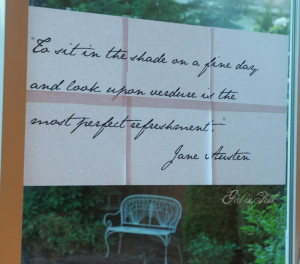 "To sit in the shade on a fine day
and look upon verdure is the
most perfect refreshment."
Jane Austen